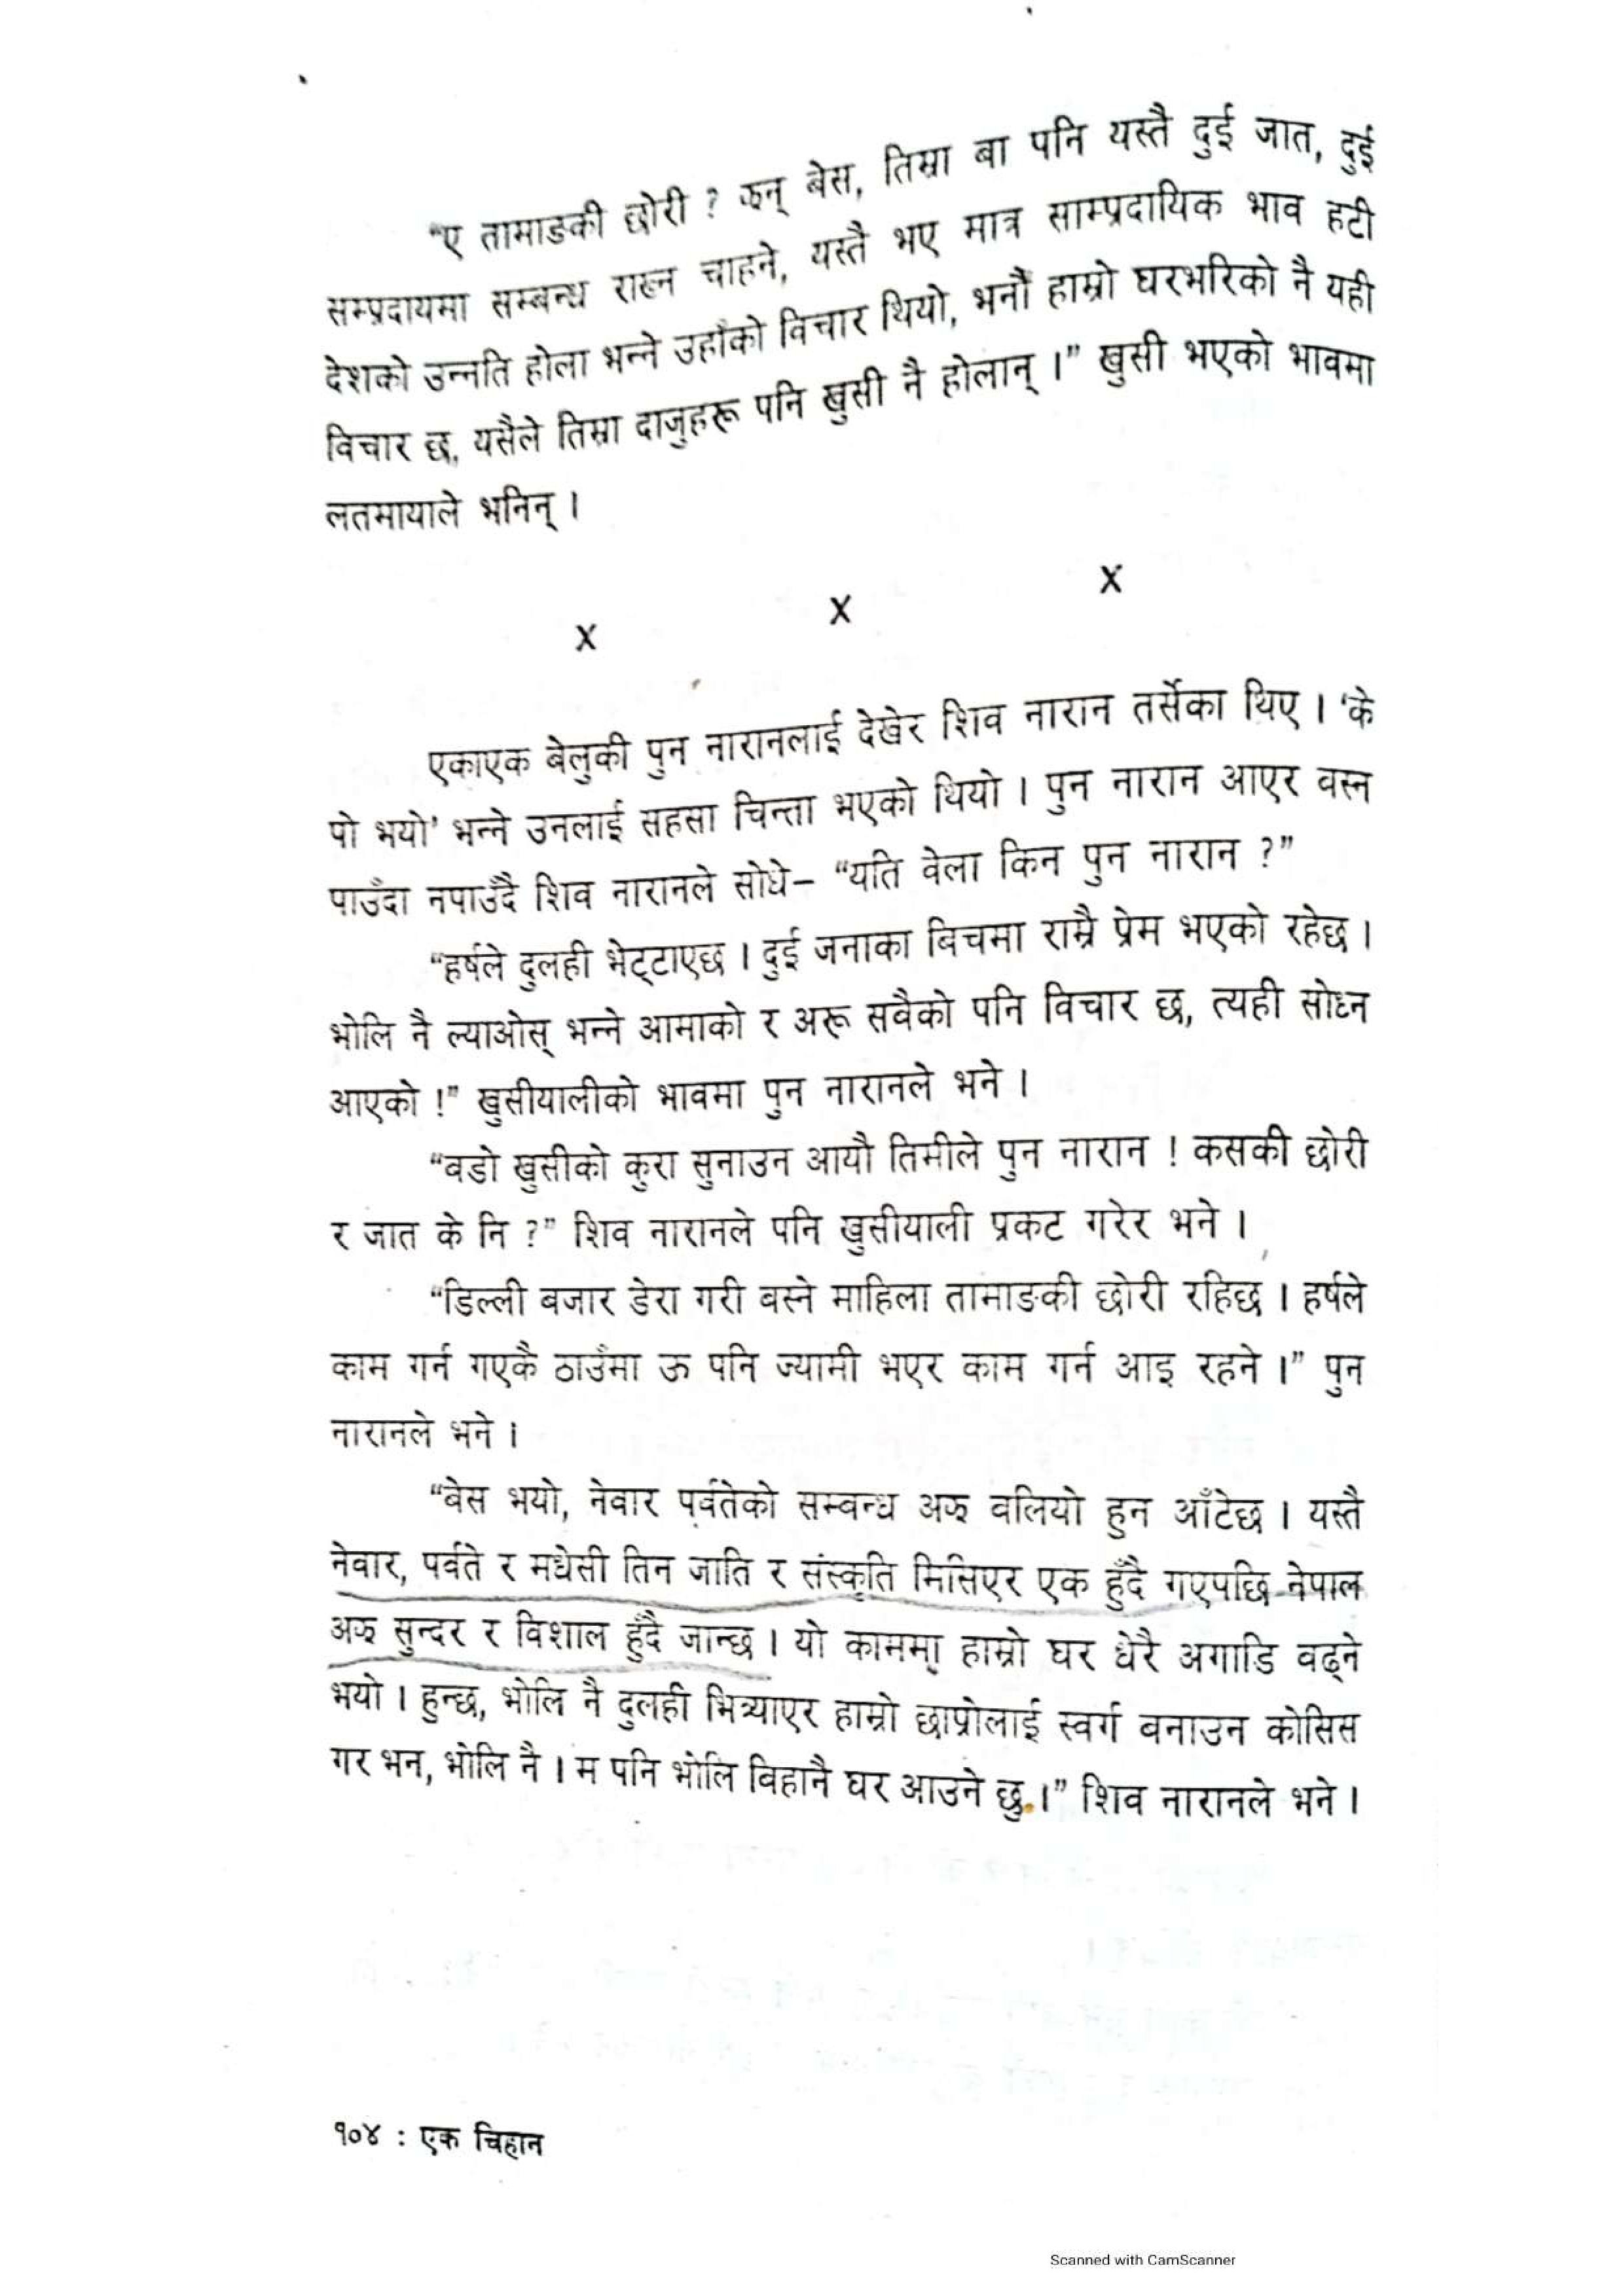 “ए तामाङकी छोरी ? झन् बेस, तिम्रा बा पनि यस्तै दुई जात, दुई
सम्प्रदायमा सम्बन्ध राख्न चाहने, यस्तै भए मात्र साम्प्रदायिक भाव हटी
देशको उन्नति होला भन्ने उहाँको विचार थियो, भनौँ हाम्रो घरभरिको नै यही
विचार छ, यसैले तिम्रा दाजुहरू पनि खुसी नै होलान् ।” खुसी भएको भावमा
लतमायाले भनिन् ।
x x x
एकाएक बेलुकी पुन नारानलाई देखेर शिव नारान तर्सेका थिए । ‘के
पो भयो’ भन्ने उनलाई सहसा चिन्ता भएको थियो । पुन नारान आएर वस्न
पाउँदा नपाउँदै शिव नारानले सोधे– “यति वेला किन पुन नारान ?”
“हर्षले दुलही भेट्टाएछ । दुई जनाका बिचमा राम्रै प्रेम भएको रहेछ ।
भोलि नै ल्याओस् भन्ने आमाको र अरू सवैको पनि विचार छ, त्यही सोध्न
आएको !” खुसीयालीको भावमा पुन नारानले भने ।
“वडो खुसीको कुरा सुनाउन आयौ तिमीले पुन नारान ! कसकी छोरी
र जात के नि ?” शिव नारानले पनि खुसीयाली प्रकट गरेर भने ।
“डिल्ली बजार डेरा गरी वस्ने माहिला तामाङकी छोरी रहिछ । हर्षले
काम गर्न गएकै ठाउँमा ऊ पनि ज्यामी भएर काम गर्न आइ रहने ।” पुन
नारानले भने ।
“बेस भयो, नेवार पर्वतेको सम्बन्ध अझ वलियो हुन आँटेछ । यस्तै
नेवार, पर्वते र मधेसी तिन जाति र संस्कृति मिसिएर एक हुँदै गएपछि नेपाल
अझ सुन्दर र विशाल हुँदै जान्छ । यो काममा हाम्रो घर धेरै अगाडि वढ्ने
भयो । हुन्छ, भोलि नै दुलही भित्र्याएर हाम्रो छाप्रोलाई स्वर्ग वनाउन कोसिस
गर भन, भोलि नै । म पनि भोलि विहानै घर आउने छु ।” शिव नारानले भने ।
१०४ : एक चिहान
Scanned with CamScanner